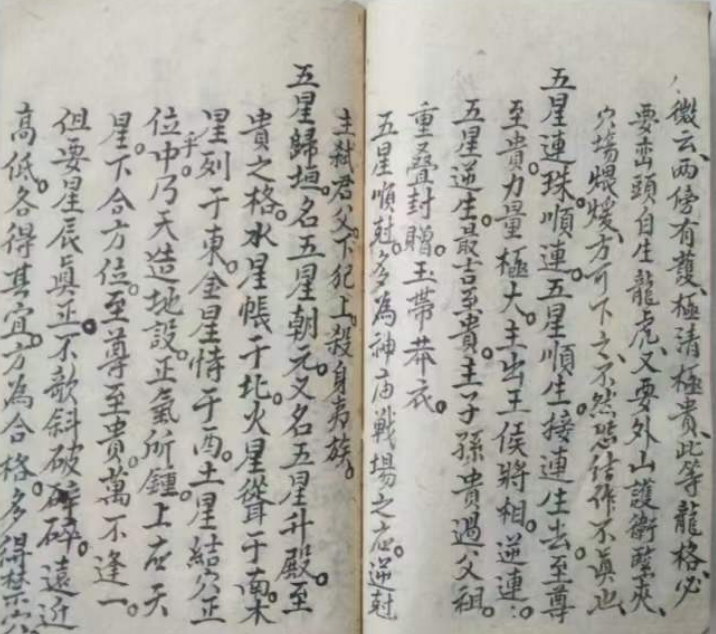 微云、两傍有護、極清極貴、此等龍格必
要峦頭自生龍虎、又要外山護衛緊夾、
穴場煨煖、方可下之、不然恐结作不真也、
五星連珠。順連。五星順生。接連生去。至尊
至貴。力量極大。主出王侯將相。逆連：
五星逆生。最吉至貴。主子孫貴過父祖。
重叠封贈。玉帶莽衣。
五星順尅。多為神庙戦場之应。逆尅
主弑君父。下犯上。殺身夷族。
五星歸垣。名五星朝元。又名五星升殿。至
貴之格。水星帳于北。火星聳于南。木
星列于東。金星恃于酉。土星結穴正
位中。乃天造地設。正氣所鍾。上应天
星。下合方位。至尊至貴。萬不逢一。
但要星辰眞正。不欹斜破碎。遠近
高低。各得其宜。方為合格。多得禁穴